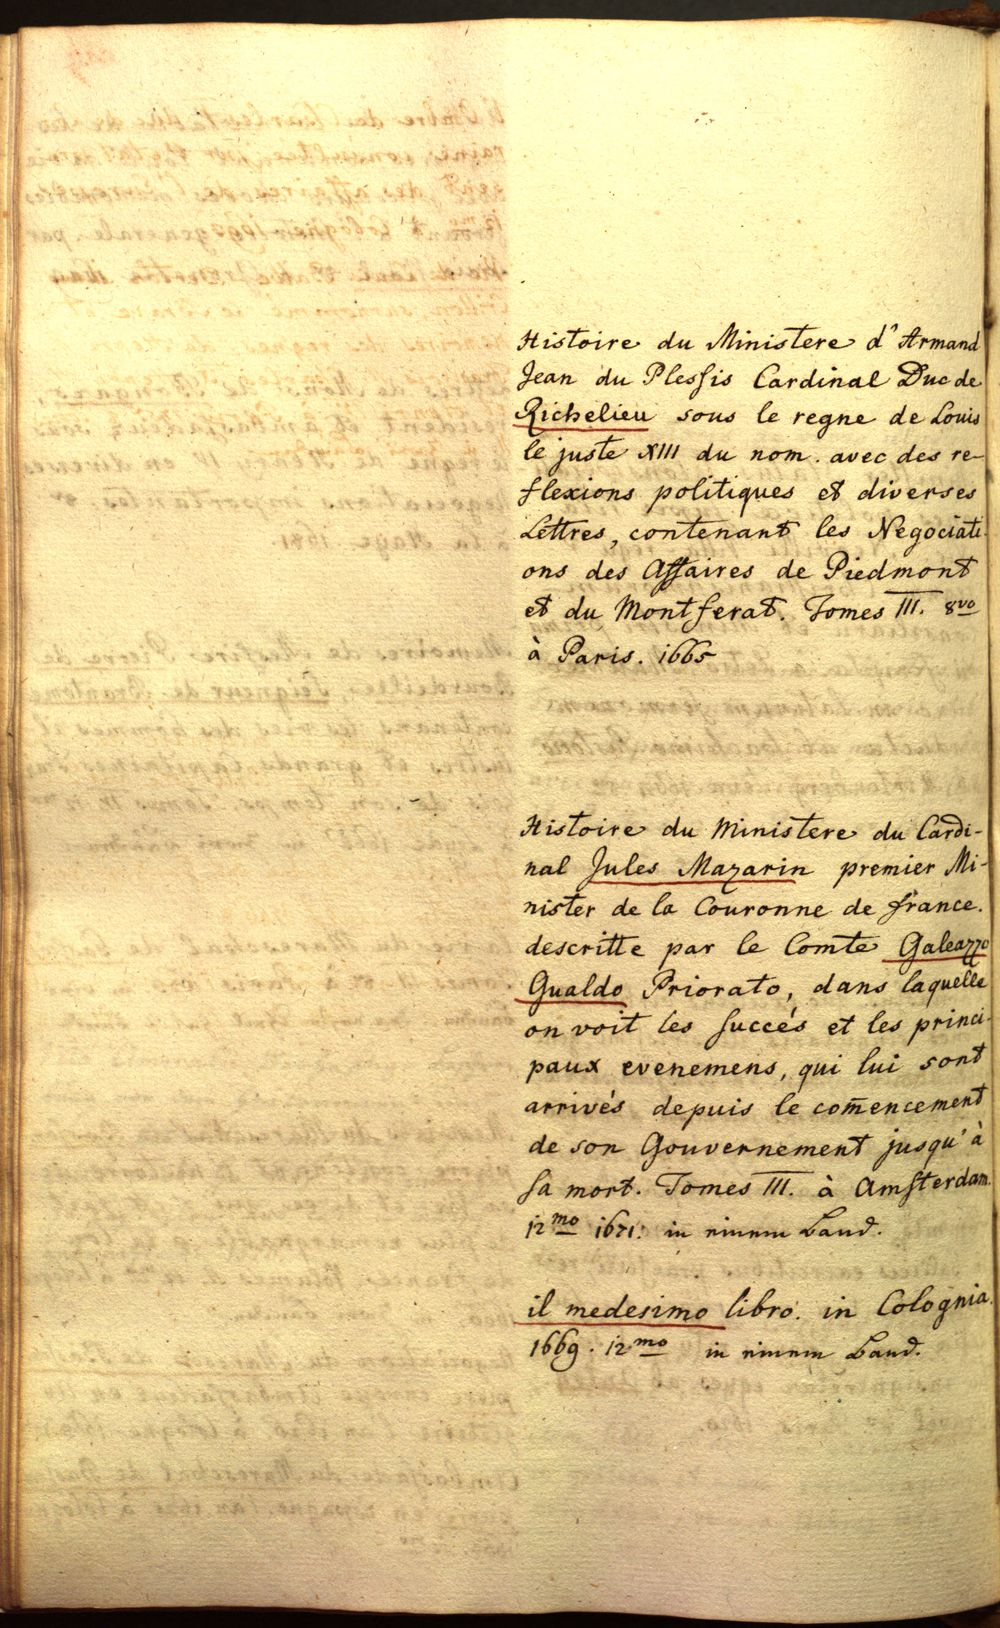 Histoire du Ministere d'Armand
Jean du Plessis Cardinal Duc de
Richelieu sous le regne de Louis
le juste XIII du nom. avec des re-
flexions politiques et diverses
Lettres, contenant les Negociati-
ons des Affaires de Piedmont
et du Montferat. Tomes III. 8vo
à Paris. 1665
Histoire du Ministere du Cardi-
nal Jules Mazarin premier Mi-
nister de la Couronne de france.
descritte par le Comte Galeazzo
Gualdo Priorato, dans laquelle
on voit les succés et les princi-
paux evenemens, qui lui sont
arrivés depuis le com̄encement
de son Gouvernement jusqu'à
sa mort. Tomes III. à Amsterdam.
12mo 1671. in einem Band.
il medesimo libro. in Colognia.
1669. 12mo in einem Band.